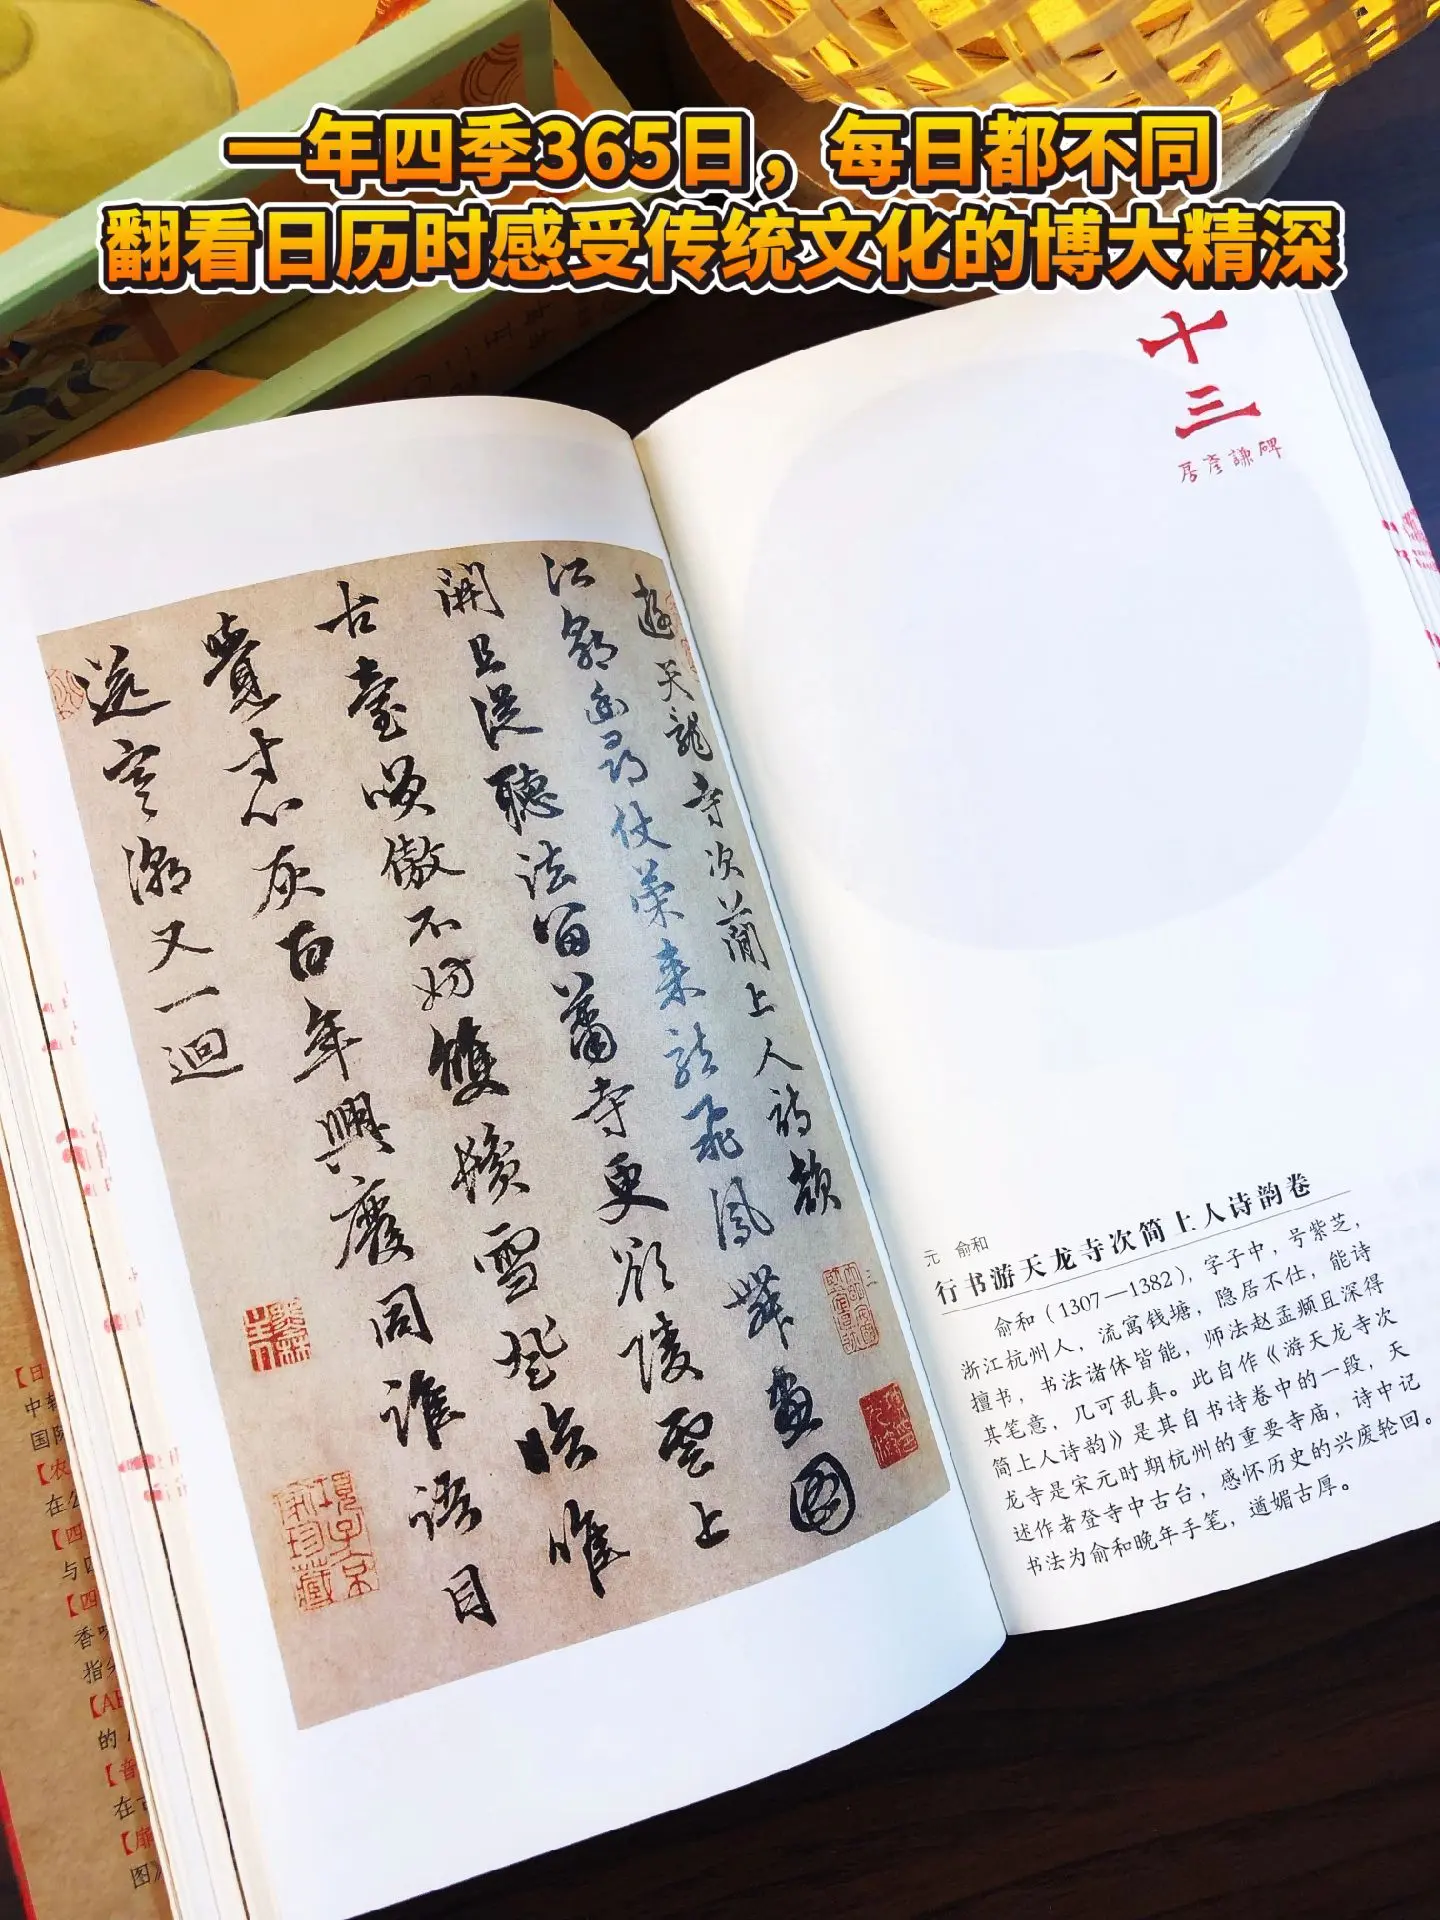 一年四季365日，每日都不同
翻看日历时感受传统文化的博大精深
十
三
房彦謙碑
遊天龍寺次簡上人詩韻
江郭幽尋仗策来龍飛鳳舞畫圖
開且從聽法留蕭寺更欲陵雲上
古臺嘆傲不妨雙鬢雪登臨惟
覺寸心灰百年興廢同誰語目
送寒潮又一迴
項子京
家珍藏
元 俞和
行书游天龙寺次简上人诗韵卷
俞和（1307—1382），字子中，号紫芝，
浙江杭州人，流寓钱塘，隐居不仕，能诗
擅书，书法诸体皆能，师法赵孟頫且深得
其笔意，几可乱真。此自作《游天龙寺次
简上人诗韵》是其自书诗卷中的一段，天
龙寺是宋元时期杭州的重要寺庙，诗中记
述作者登寺中古台，感怀历史的兴废轮回。
书法为俞和晚年手笔，遒媚古厚。